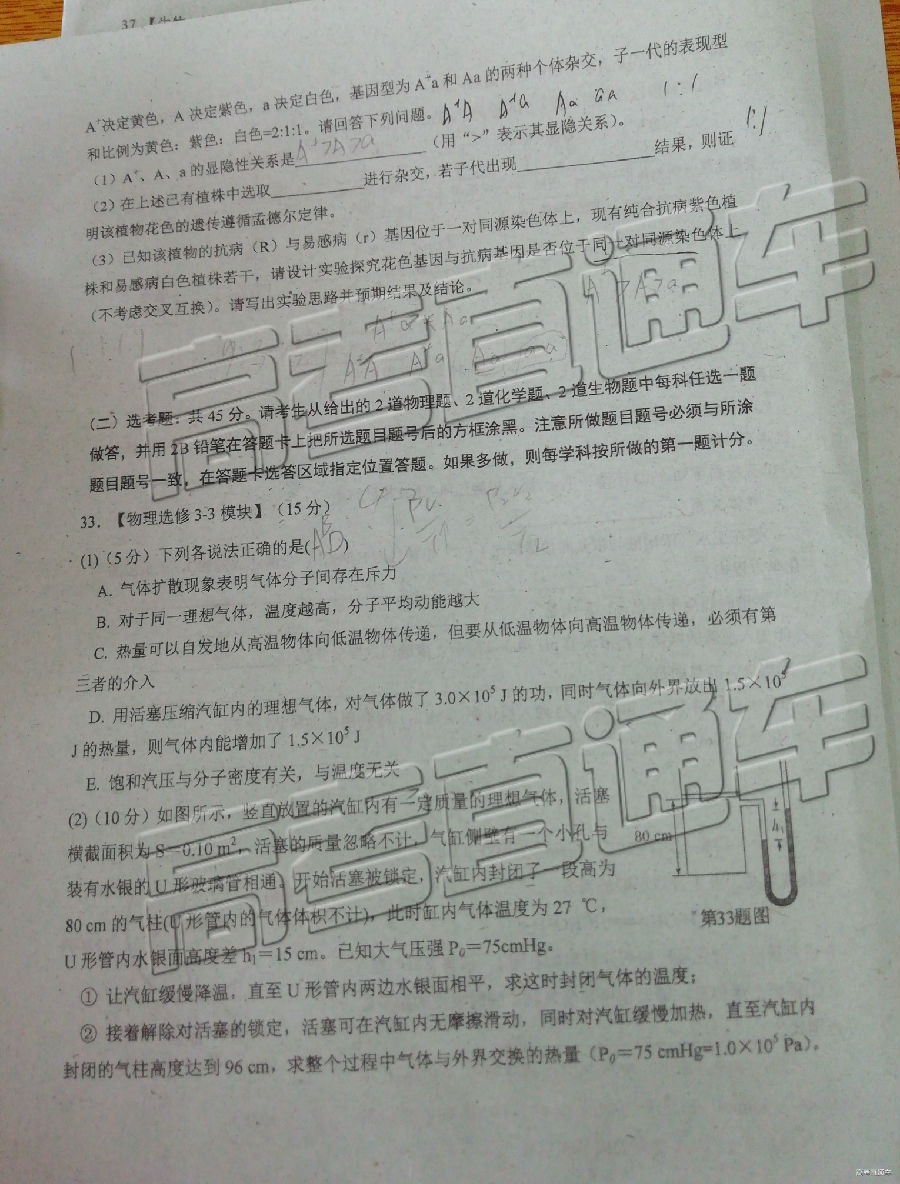 37.【生物
A⁺决定黄色，A 决定紫色，a 决定白色，基因型为 A⁺a 和 Aa 的两种个体杂交，子一代的表现型
和比例为黄色：紫色：白色=2:1:1。请回答下列问题。A⁺A A⁺a Aa aa 1:1
（1）A⁺、A、a 的显隐性关系是 A⁺>A>a （用“>”表示其显隐关系）。 1:1
（2）在上述已有植株中选取__________进行杂交，若子代出现__________结果，则证
明该植物花色的遗传遵循孟德尔定律。
（3）已知该植物的抗病（R）与易感病（r）基因位于一对同源染色体上，现有纯合抗病紫色植
株和易感病白色植株若干，请设计实验探究花色基因与抗病基因是否位于同一对同源染色体上
（不考虑交叉互换）。请写出实验思路并预期结果及结论。
A⁺a×Aa
A⁺A A⁺a Aa aa
（二）选考题：共 45 分。请考生从给出的 2 道物理题、2 道化学题、2 道生物题中每科任选一题
做答，并用 2B 铅笔在答题卡上把所选题目题号后的方框涂黑。注意所做题目题号必须与所涂
题目题号一致，在答题卡选答区域指定位置答题。如果多做，则每学科按所做的第一题计分。
33.【物理选修 3-3 模块】（15 分）
(1)（5 分）下列各说法正确的是( )
A. 气体扩散现象表明气体分子间存在斥力
B. 对于同一理想气体，温度越高，分子平均动能越大
C. 热量可以自发地从高温物体向低温物体传递，但要从低温物体向高温物体传递，必须有第
三者的介入
D. 用活塞压缩汽缸内的理想气体，对气体做了 3.0×10⁵ J 的功，同时气体向外界放出 1.5×10⁵
J 的热量，则气体内能增加了 1.5×10⁵ J
E. 饱和汽压与分子密度有关，与温度无关
(2)（10 分）如图所示，竖直放置的汽缸内有一定质量的理想气体，活塞
横截面积为 S=0.10 m²，活塞的质量忽略不计，气缸侧壁有一个小孔与
装有水银的 U 形玻璃管相通。开始活塞被锁定，汽缸内封闭了一段高为
80 cm 的气柱(U 形管内的气体体积不计)，此时缸内气体温度为 27 ℃，
U 形管内水银面高度差 h₁=15 cm。已知大气压强 P₀=75cmHg。
80 cm
h₁
第33题图
① 让汽缸缓慢降温，直至 U 形管内两边水银面相平，求这时封闭气体的温度；
② 接着解除对活塞的锁定，活塞可在汽缸内无摩擦滑动，同时对汽缸缓慢加热，直至汽缸内
封闭的气柱高度达到 96 cm，求整个过程中气体与外界交换的热量（P₀=75 cmHg=1.0×10⁵ Pa）。
高考直通车
高考直通车
@高考直通车